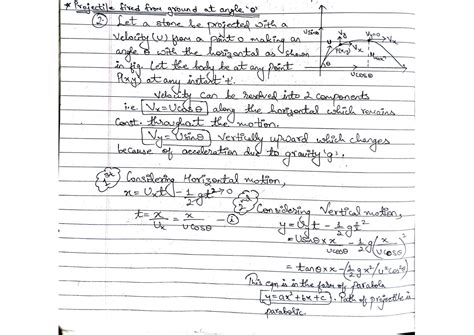 * Projectile fired from ground at angle 'θ'
② Let a stone be projected with a
velocity (u) from a point O making an
angle θ with the horizontal as shown
in fig. Let the body be at any point
P(x,y) at any instant 't'.
Velocity can be resolved into 2 components
i.e Vx = Ucosθ along the horizontal which remains
Const. throughout the motion.
Vy = Usinθ Vertically upward which changes
because of acceleration due to gravity 'g'.
Usinθ
Vy
Vx
P(x,y)
Vy=0
Vx
Hmax
θ
Ucosθ
Considering Horizontal motion,
x = Uxt - 1/2 gt² → 0
t = x/Ux = x/ucosθ — ①
Considering Vertical motion,
y = Uyt - 1/2 gt²
= Usinθ × x/ucosθ - 1/2 g (x/ucosθ)²
= tanθ × x - (1/2 g x²/u²cos²θ)
This eqn is in the form of parabola
y = ax² + bx + c. Path of projectile is
parabolic.